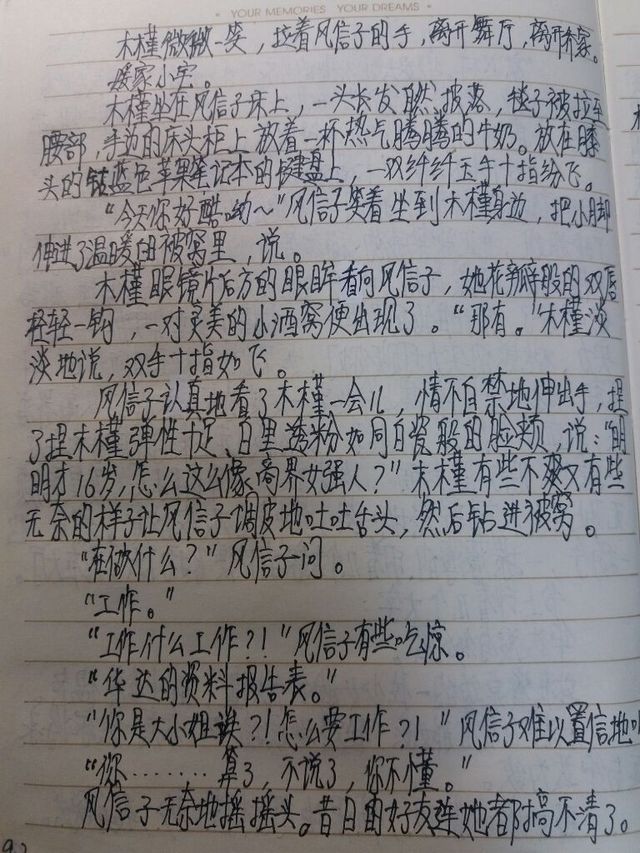 YOUR MEMORIES YOUR DREAMS
木槿微微一笑，拉着风信子的手，离开舞厅，离开乔家。
暖家小宅。
木槿坐在风信子床上，一头长发自然披落，毯子被拉至
腰部，手边的床头柜上放着一杯热气腾腾的牛奶。放在膝
头的钴蓝色苹果笔记本的键盘上，一双纤纤玉手十指纷飞。
“今天你好酷呦～”风信子笑着坐到木槿身边，把小脚
伸进了温暖的被窝里，说。
木槿眼镜片后方的眼眸看向风信子，她花瓣般的双唇
轻轻一钩，一对灵美的小酒窝便出现了。“那有。”木槿淡
淡地说，双手十指如飞。
风信子认真地看了木槿一会儿，情不自禁地伸出手，捏
了捏木槿弹性十足、白里透粉如同白瓷般的脸颊，说：“明
明才16岁，怎么这么像商界女强人？”木槿有些不爽又有些
无奈的样子让风信子调皮地吐吐舌头，然后钻进被窝。
“在做什么？”风信子问。
“工作。”
“工作什么工作？！”风信子有些吃惊。
“华达的资料报告表。”
“你是大小姐诶？！怎么要工作？！”风信子难以置信地
“你………算了，不说了，你不懂。”
风信子无奈地摇摇头。昔日的好友连她都搞不清了。